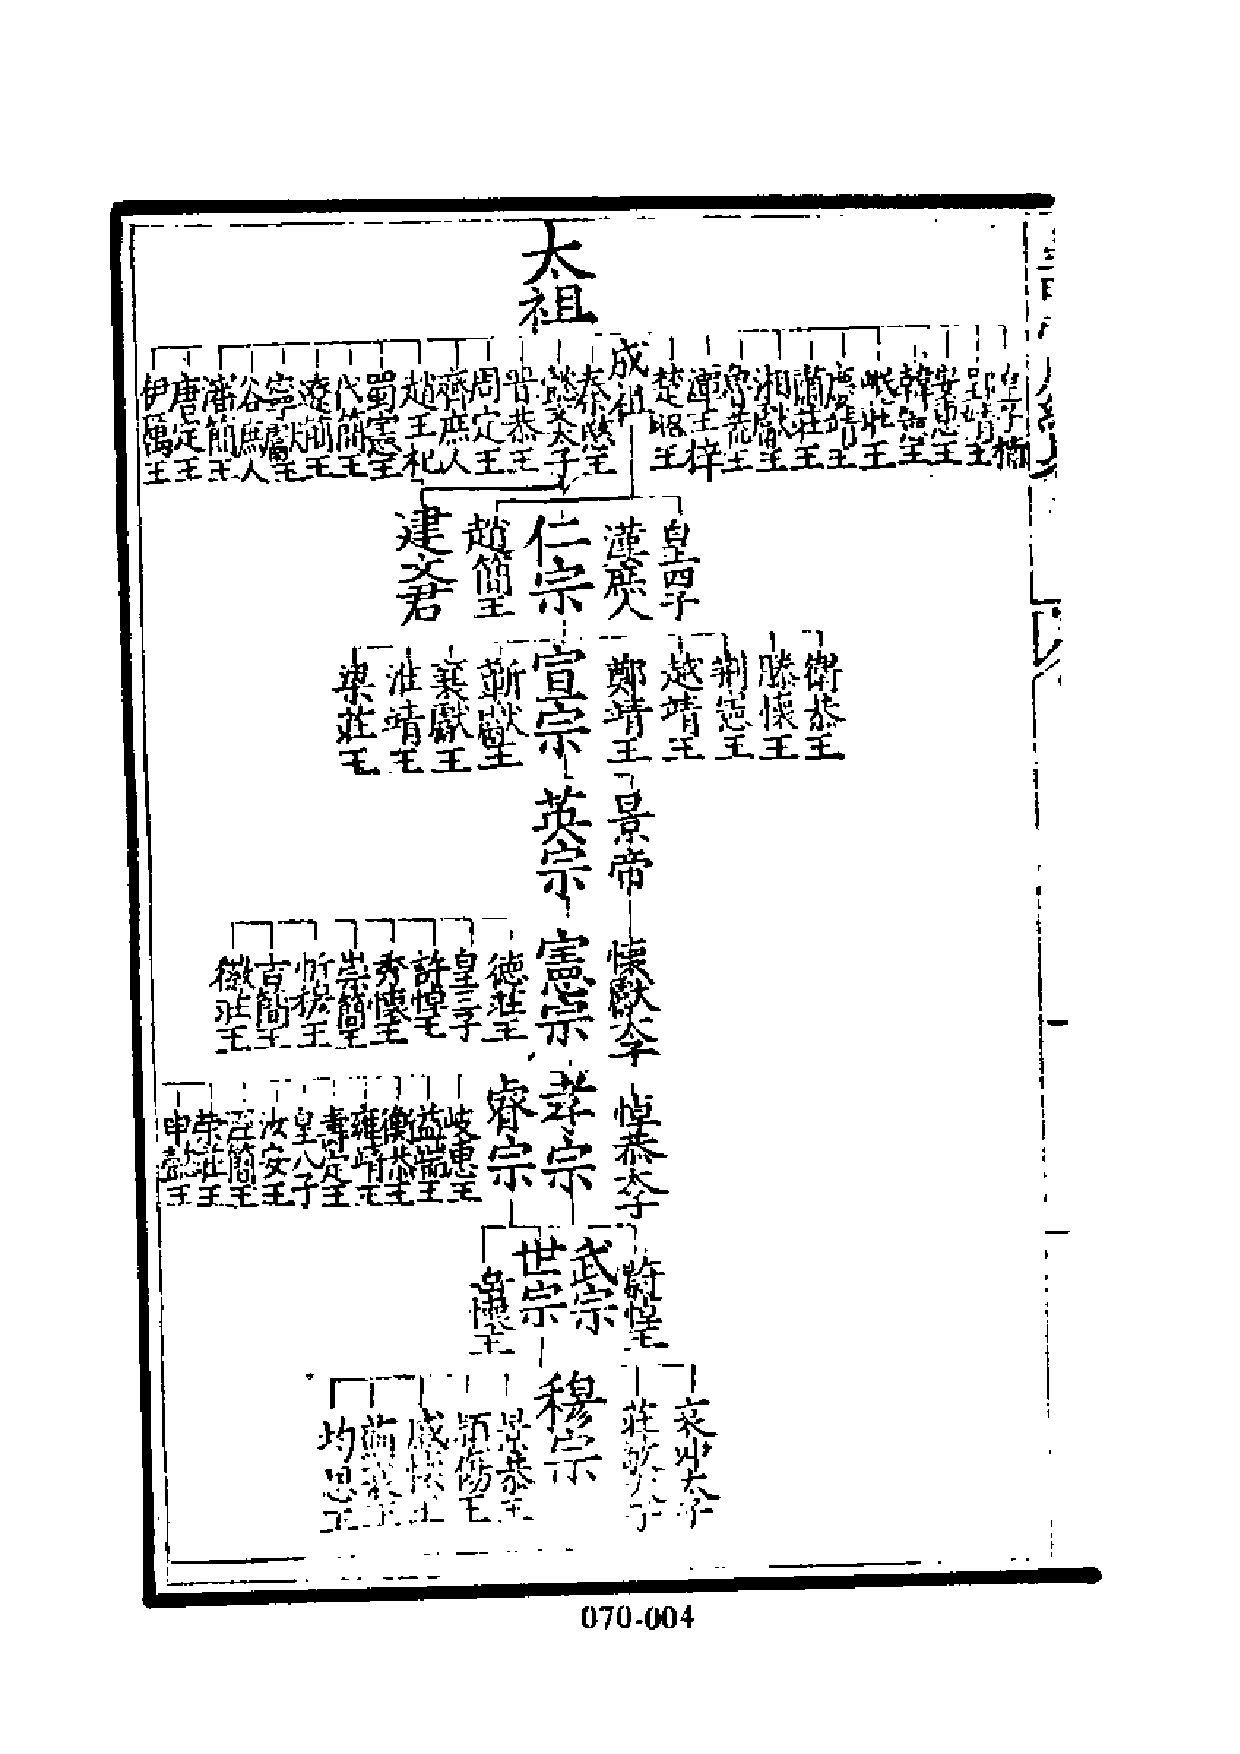 太祖
皇子楠
郢靖王
安惠王
韓憲王
岷莊王
慶靖王
肅莊王
湘獻王
魯荒王
潭王梓
楚昭王
成祖
秦愍王
懿文太子
晋恭王
周定王
齊庶人
趙王杞
蜀憲王
代簡王
遼簡王
寧獻王
谷庶人
瀋簡王
唐定王
伊厲王
皇四子
漢庶人
仁宗
趙簡王
建文君
衛恭王
滕懷王
荆憲王
越靖王
鄭靖王
宣宗
蘄獻王
襄獻王
淮靖王
梁莊王
景帝
英宗
懷獻太子
憲宗
德莊王
皇三子
許悼王
秀懷王
崇簡王
忻穆王
吉簡王
徽莊王
悼恭太子
孝宗
睿宗
岐惠王
益端王
衡恭王
雍靖王
壽定王
皇八子
汝安王
涇簡王
榮莊王
申懿王
蔚悼王
武宗
世宗
懷王
哀冲太子
莊敬太子
穆宗
景恭王
潁殤王
戚懷王
薊哀王
均思王
070-004